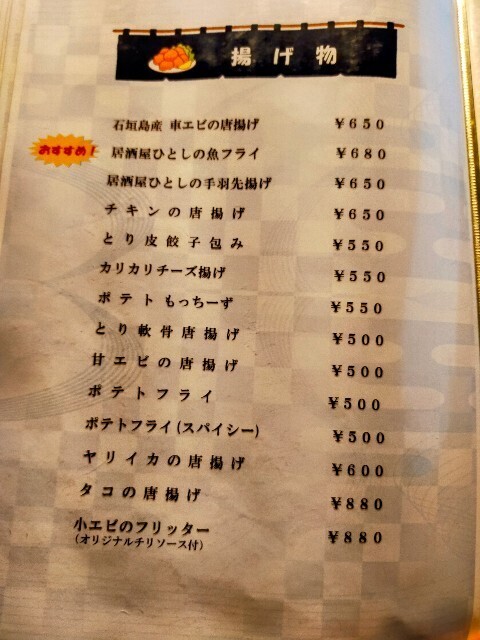 揚げ物
石垣島産 車エビの唐揚げ ￥650
おすすめ! 居酒屋ひとしの魚フライ ￥680
居酒屋ひとしの手羽先揚げ ￥650
チキンの唐揚げ ￥650
とり皮餃子包み ￥550
カリカリチーズ揚げ ￥550
ポテトもっちーず ￥550
とり軟骨唐揚げ ￥500
甘エビの唐揚げ ￥500
ポテトフライ ￥500
ポテトフライ(スパイシー) ￥500
ヤリイカの唐揚げ ￥600
タコの唐揚げ ￥880
小エビのフリッター ￥880
(オリジナルチリソース付)